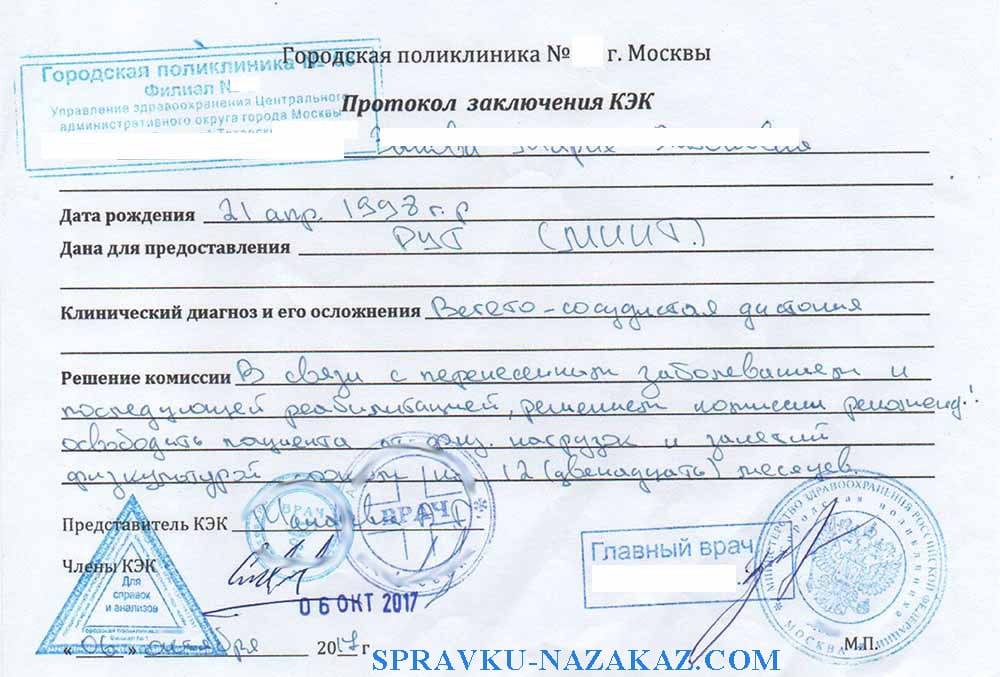 Городская поликлиника № г. Москвы
Городская поликлиника №
Филиал №
Управление здравоохранения Центрального
административного округа города Москвы
Протокол заключения КЭК
Дата рождения 21 апр. 1998 г.р
Дана для предоставления РУТ (МИИТ.)
Клинический диагноз и его осложнения Вегето-сосудистая дистония
Решение комиссии В связи с перенесенным заболеванием и
последующей реабилитацией, решением комиссии рекоменд.:
освободить пациента от физ. нагрузок и занятий
физкультурой на 12 (двенадцать) месяцев.
Представитель КЭК
ВРАЧ
ВРАЧ
Члены КЭК
Для
справок
и анализов
Городская поликлиника
06 ОКТ 2017
Главный врач
МИНИСТЕРСТВО ЗДРАВООХРАНЕНИЯ РОССИЙСКОЙ ФЕДЕРАЦИИ
Городская поликлиника
МОСКВА
« 06 » октября 2017 г
М.П.
SPRAVKU-NAZAKAZ.COM